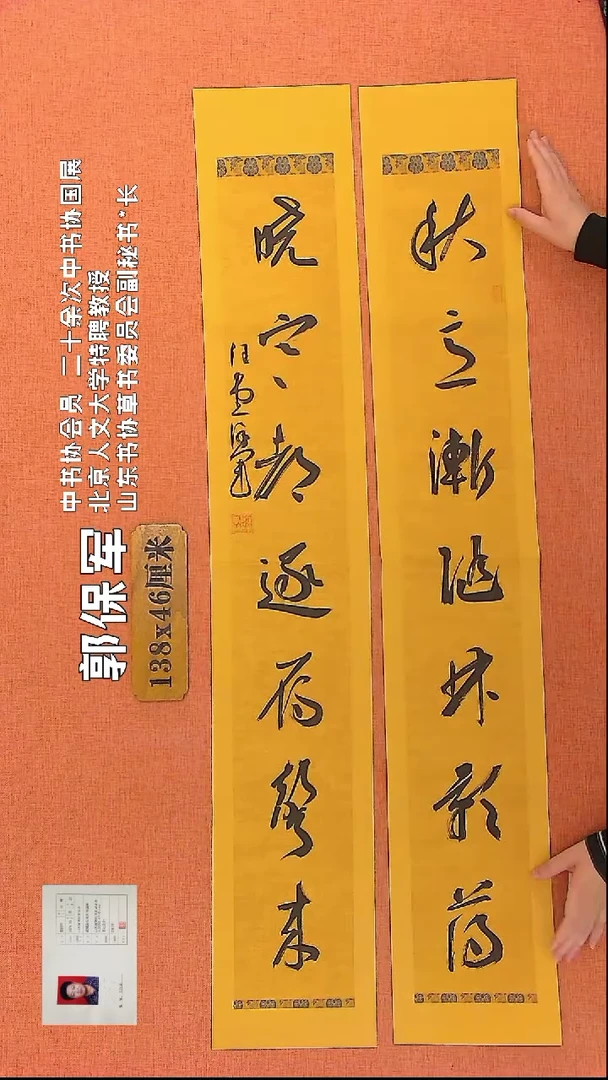 秋意渐随林影薄
晓寒都逐雁声来
中书协会员 二十余次中书协国展
北京人文大学特聘教授
山东书协草书委员会副秘书*长
郭保军
138x46厘米